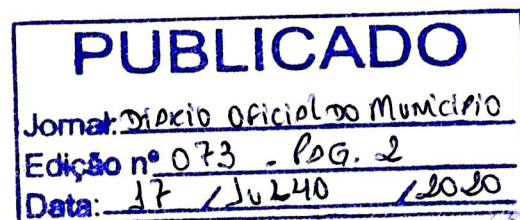 PUBLICADO
Jornal: DIÁRIO OFICIAL DO MUNICIPIO
Edição nº 073 - PAG. 2
Data: 17 / JULHO / 2020